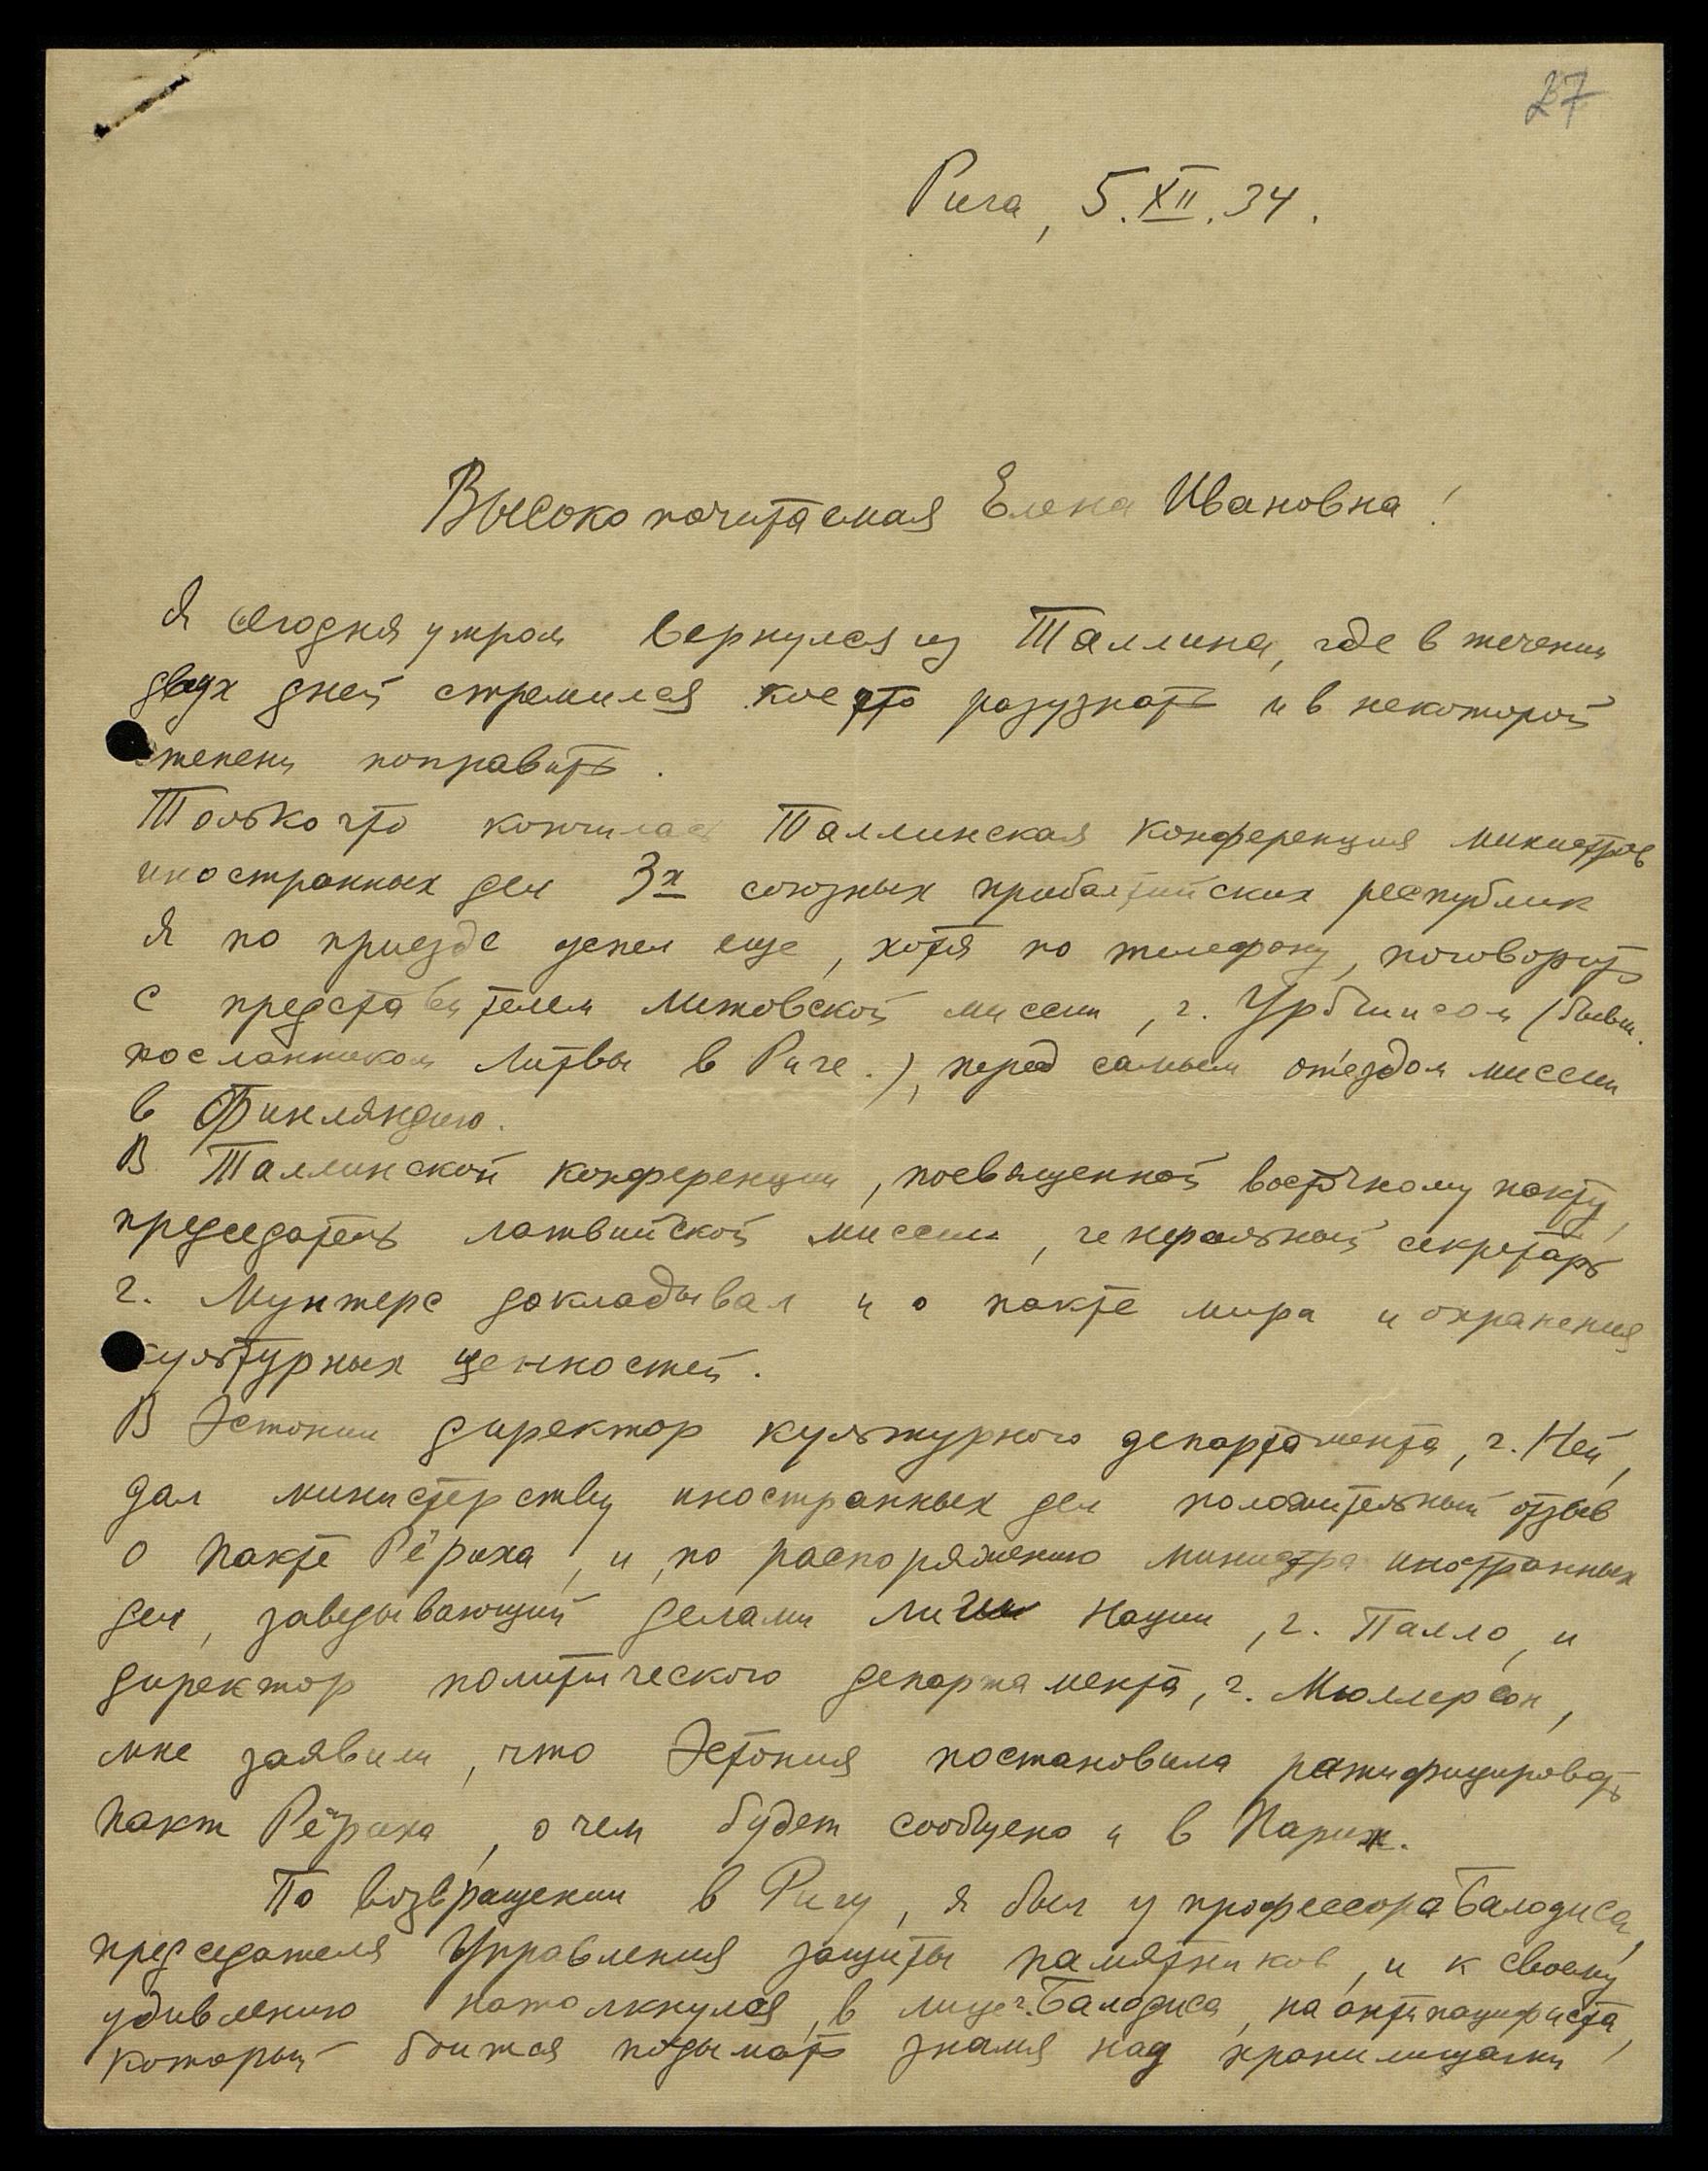 27
Рига, 5.XII.34.
Высокопочитаемая Елена Ивановна!
Я сегодня утром вернулся из Таллина, где в течении
двух дней стремился кое что разузнать и в некоторой
степени поправить.
Только что кончилась Таллинская конференция министров
иностранных дел 3х союзных прибалтийских республик
Я по приезде успел еще, хотя по телефону, поговорить
с представителем литовской миссии, г. Урбшисом (бывш.
посланником Литвы в Риге.), перед самым отъездом миссии
в Финляндию.
В Таллинской конференции, посвященной восточному пакту,
председатель латвийской миссии, генеральный секретарь
г. Мунтерс докладывал и о пакте мира и охранения
культурных ценностей.
В Эстонии директор культурного департамента, г. Ней,
дал министерству иностранных дел положительный отзыв
о Пакте Рёриха, и, по распоряжению министра иностранных
дел, заведывающий делами лиги Нации, г. Палло, и
директор политического департамента, г. Мюллерсон,
мне заявили, что Эстония постановила ратифицировать
Пакт Рёриха, о чем будет сообщено и в Париж.
По возвращении в Ригу, я был у профессора Балодиса,
председателя Управления защиты памятников, и к своему
удивлению натолкнулся, в лице г. Балодиса, на антипацифиста,
который боится подымать знамя над хранилищами